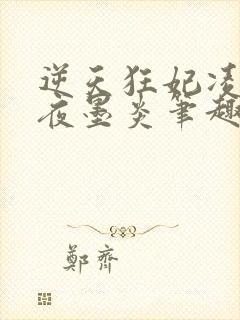 逆天狂妃凌
夜墨炎笔趣
鄭齊